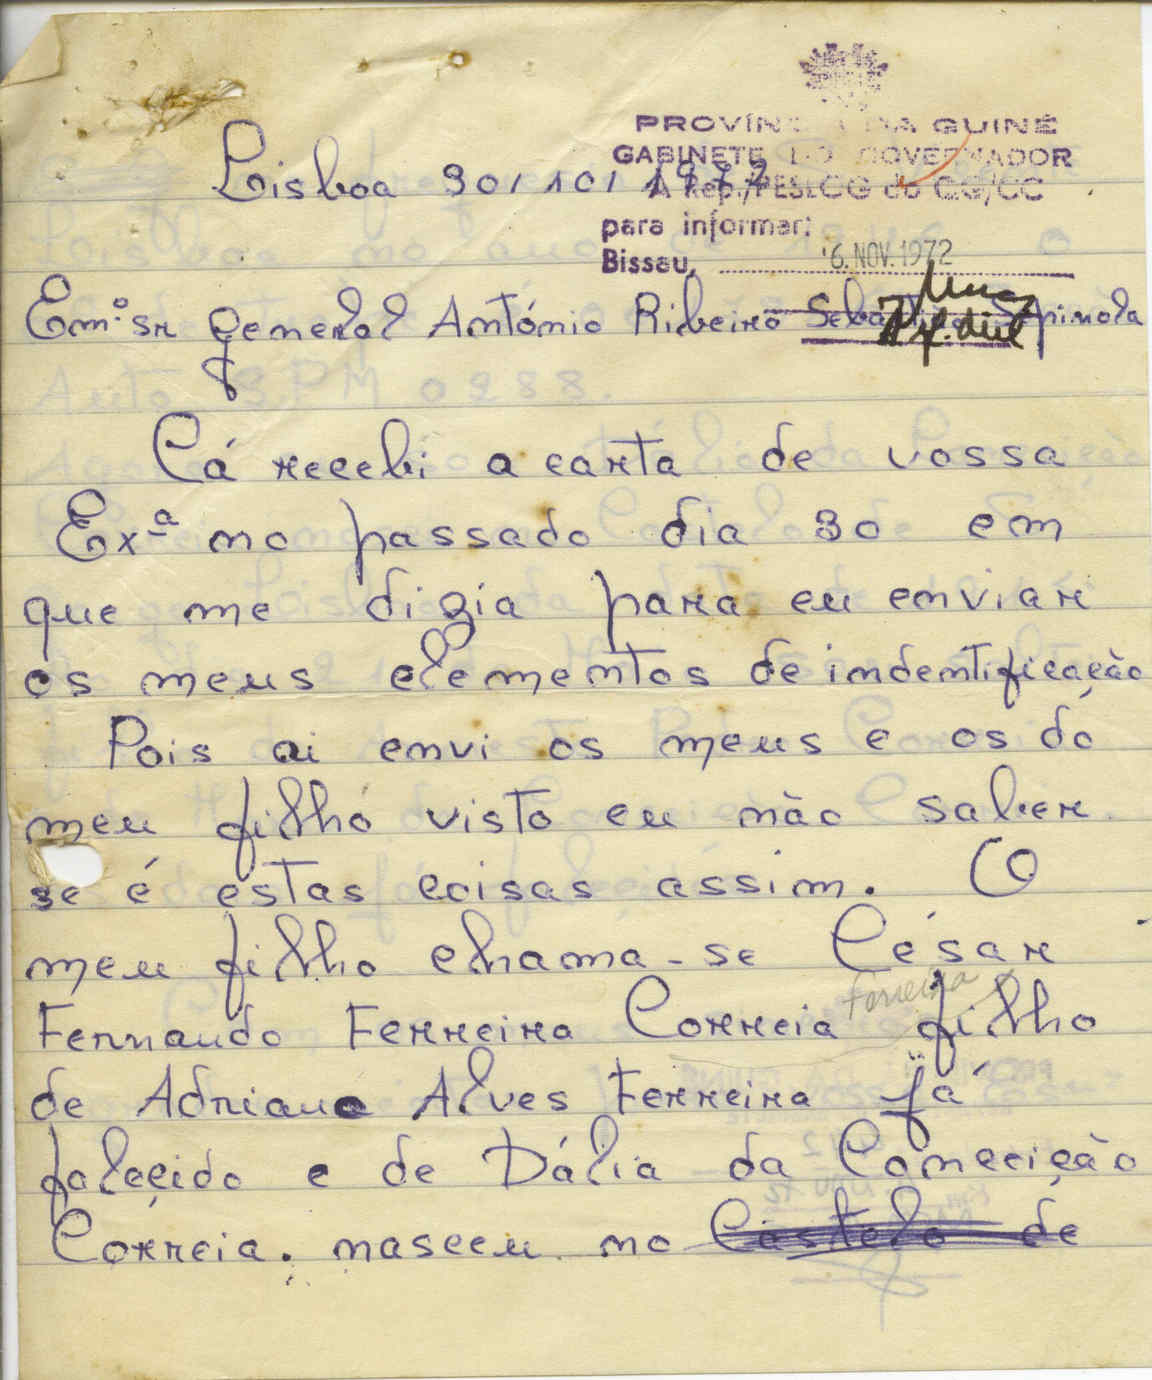 PROVÍNCIA DA GUINÉ
GABINETE DO GOVERNADOR
À Rep./PESLCG do CG/CC
para informar:
Bissau, 6. NOV. 1972
Lisboa 30/10/1972
Em.º sr general António Ribeiro Spinola
Cá recebi a carta de vossa
Ex.ª no passado dia 30 em
que me dizia para eu enviar
os meus elementos de indentificação
Pois ai envi os meus e os do
meu filho visto eu não saber
se é estas coisas assim. O
meu filho chama-se César
Ferreira
Fernando Ferreira Correia filho
de Adriano Alves Ferreira já
falecido e de Dália da Conceição
Correia. nasceu no Castelo de